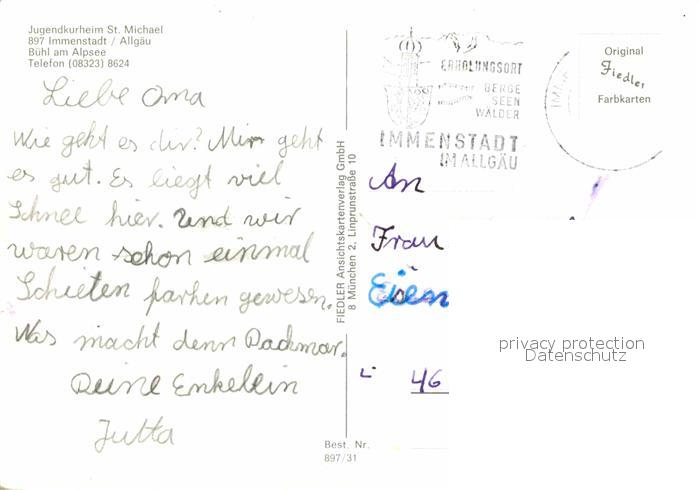 Jugendkurheim St. Michael
897 Immenstadt / Allgäu
Bühl am Alpsee
Telefon (08323) 8624
Liebe Oma
Wie geht es dir? Mir geht
es gut. Es liegt viel
Schnel hier. Und wir
waren schon einmal
Schieten farhen gewesen.
Was macht denn Dackmar.
Deine Enkelein
Jutta
FIEDLER Ansichtskartenverlag GmbH
8 München 2, Linprunstraße 10
Best. Nr.
897/31
ERHOLUNGSORT
BERGE
SEEN
WÄLDER
IMMENSTADT
IM ALLGÄU
Original
Fiedler
Farbkarten
An
Frau
46
privacy protection
Datenschutz